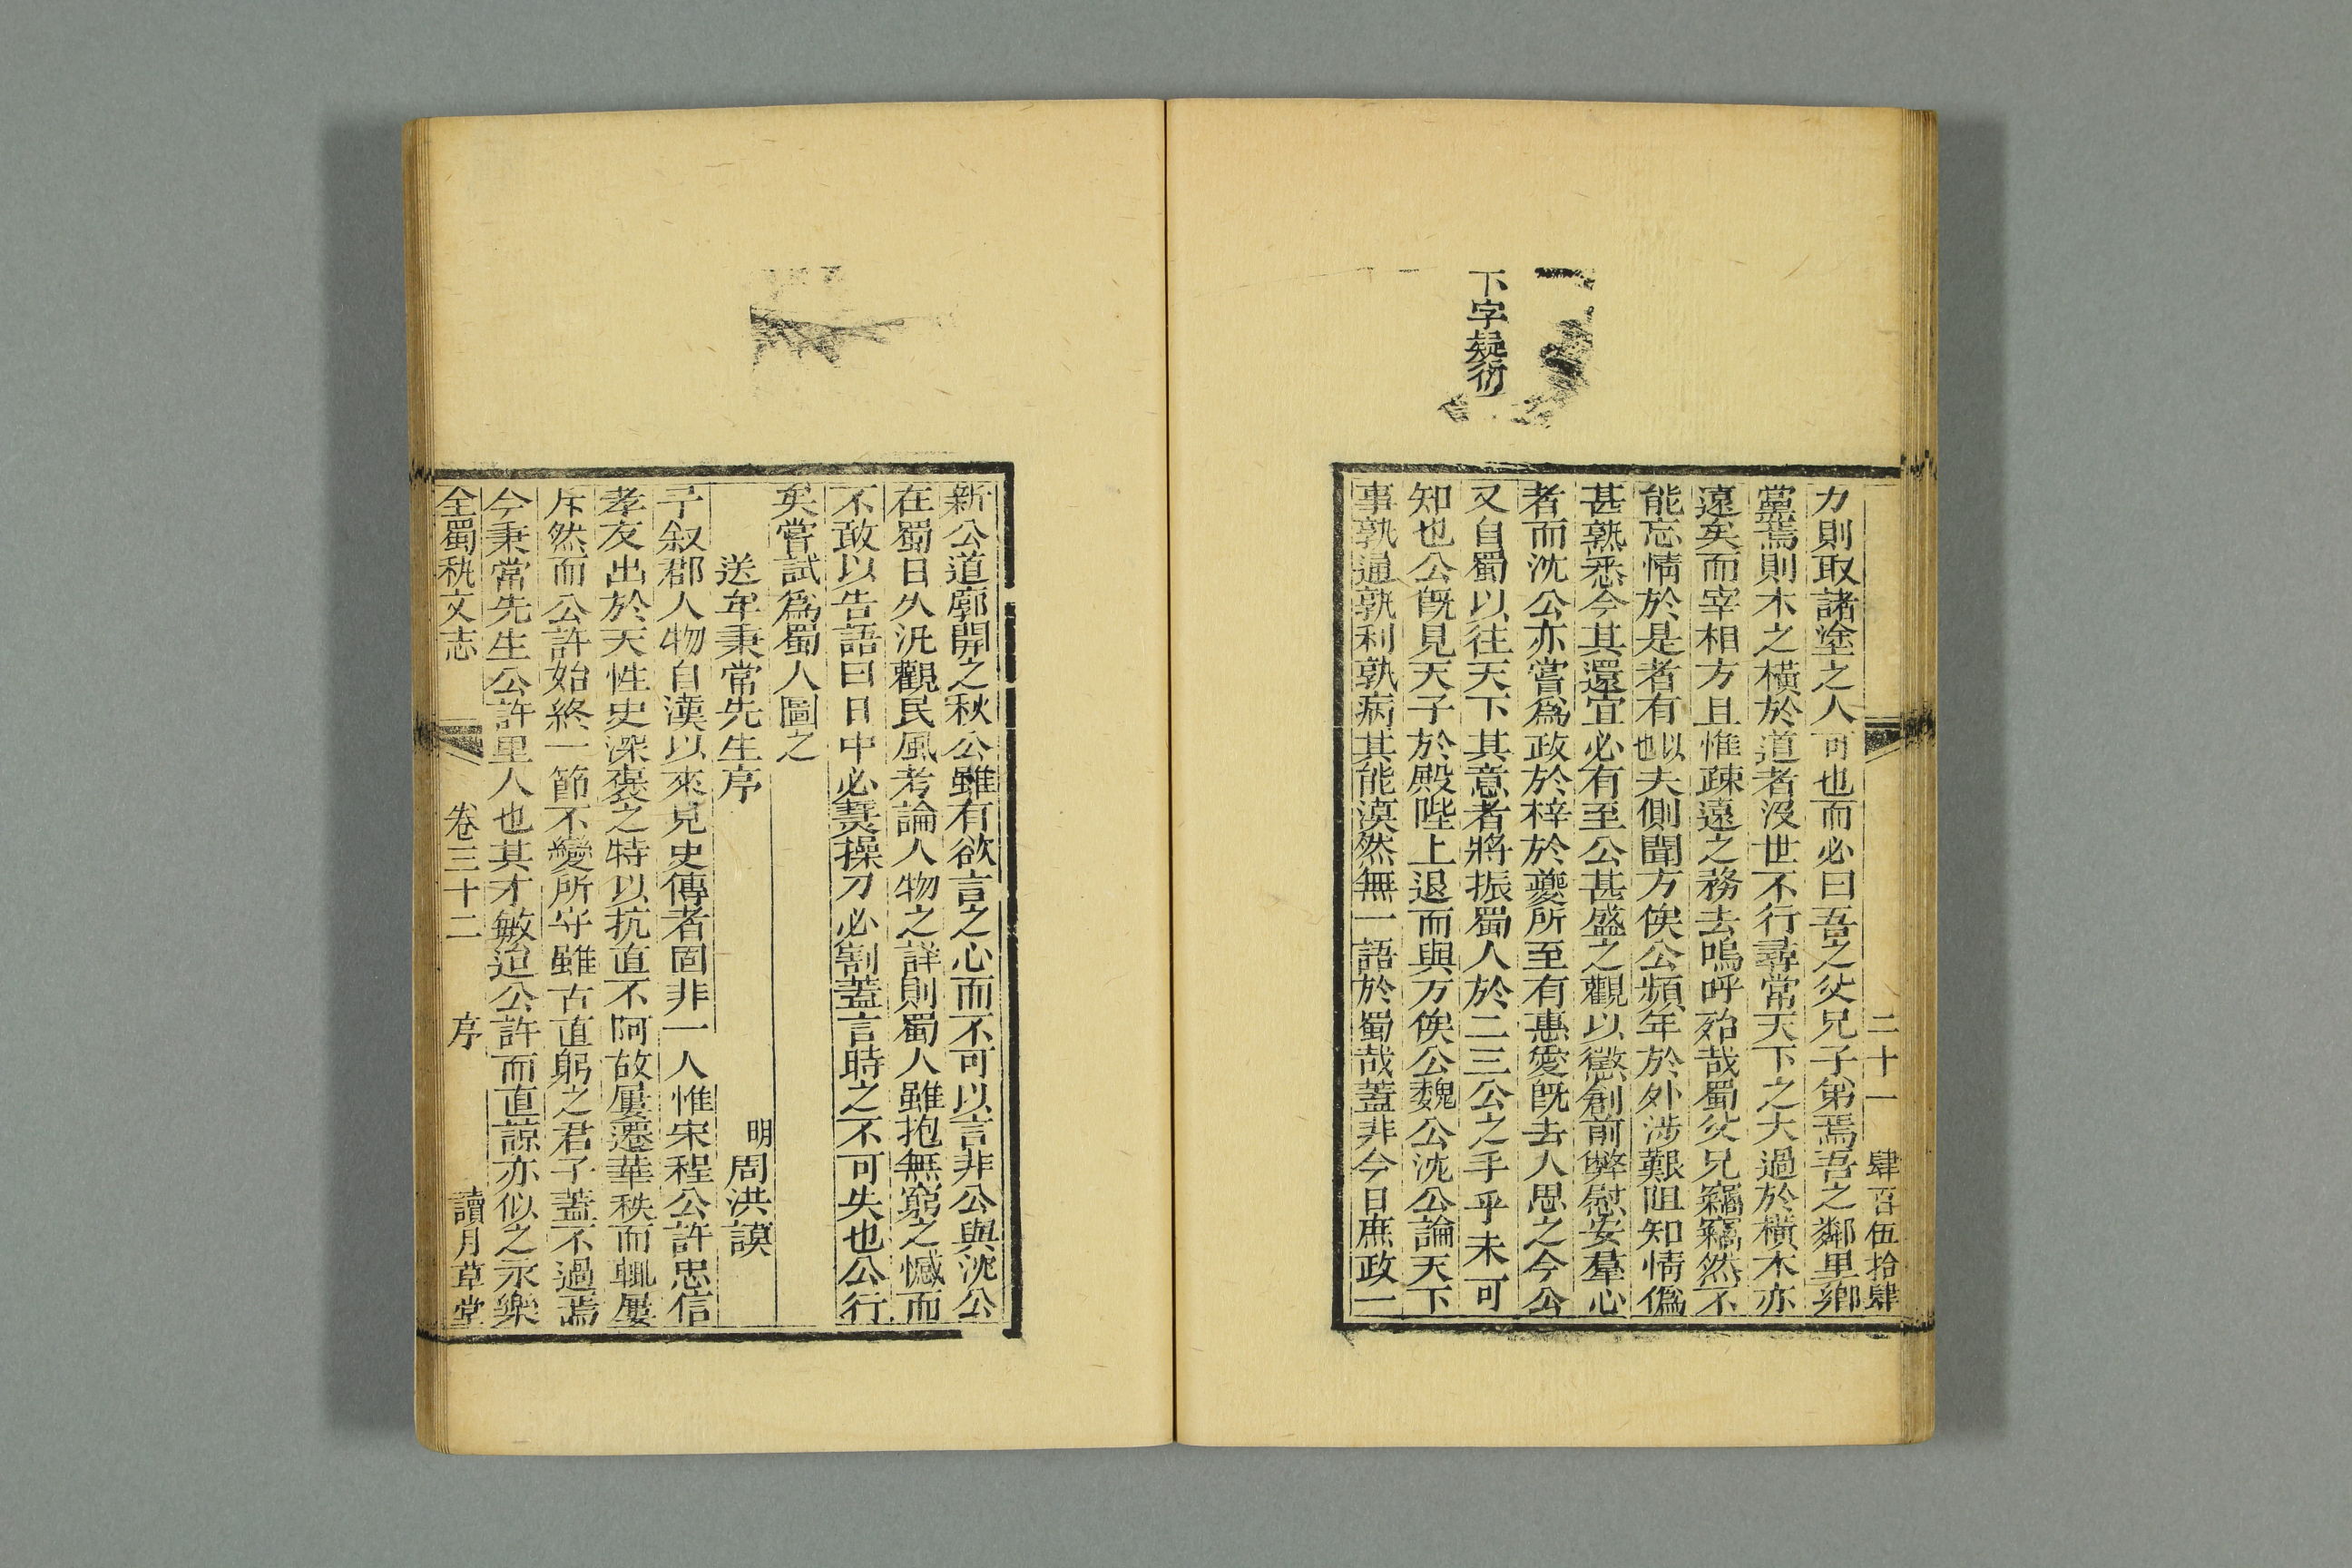 下字疑衍
二十一 肆百伍拾肆
力則取諸塗之人可也而必曰吾之父兄子第焉吾之鄰里鄉
黨焉則木之橫於道者沒世不行尋常天下之大過於橫木亦
遠矣而宰相方且惟疎遠之務去嗚呼殆哉蜀父兄竊竊然不
能忘情於是者有以也夫側聞方俟公頻年於外涉艱阻知情僞
甚孰悉今其還宜必有至公甚盛之觀以懲創前弊慰安羣心
者而沈公亦嘗爲政於梓於夔所至有惠愛旣去人思之今公
又自蜀以往天下其意者將振蜀人於二三公之手乎未可
知也公旣見天子於殿陛上退而與万俟公魏公沈公論天下
事孰通孰利孰病其能漠然無一語於蜀哉蓋非今日庶政一
新公道廓開之秋公雖有欲言之心而不可以言非公與沈公
在蜀日久汎觀民風考論人物之詳則蜀人雖抱無窮之憾而
不敢以告語曰日中必熭操刀必割蓋言時之不可失也公行
矣嘗試爲蜀人圖之
送牟秉常先生序
明周洪謨
予叙郡人物自漢以來見史傳者固非一人惟宋程公許忠信
孝友出於天性史深褒之特以抗直不阿故屢遷華秩而輒屢
斥然而公許始終一節不變所守雖古直躬之君子蓋不過焉
今秉常先生公許里人也其才敏迨公許而直諒亦似之永樂
全蜀秇文志 卷三十二 序 讀月草堂